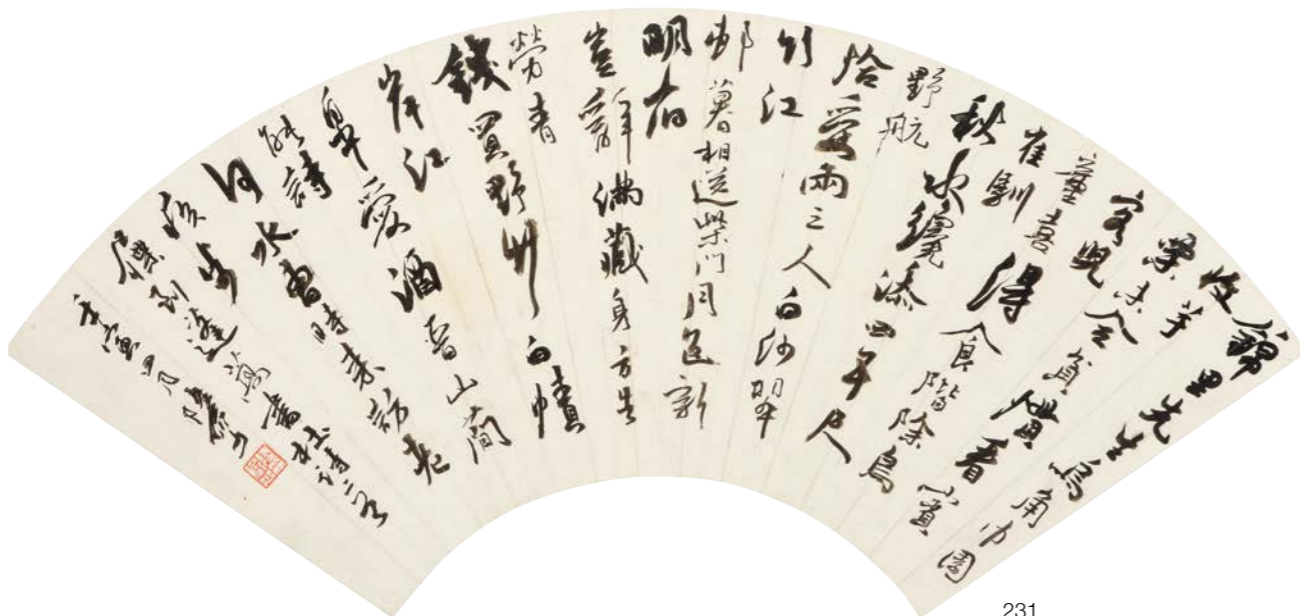 錦里先生烏角巾園
收栗芋未全貧慣看賓
客兒童喜得食階除鳥
雀馴
秋水纔深四五尺
野航
恰受兩三人白沙翠
竹江
邨暮相送柴門月色新
明府
豈辭滿藏身方告
勞青
錢買野竹白幘
岸江
皋愛酒晉山簡
能詩
何水曹時來訪老
疾步
屧到蓬蒿書杜詩二首
壬寅四月
231